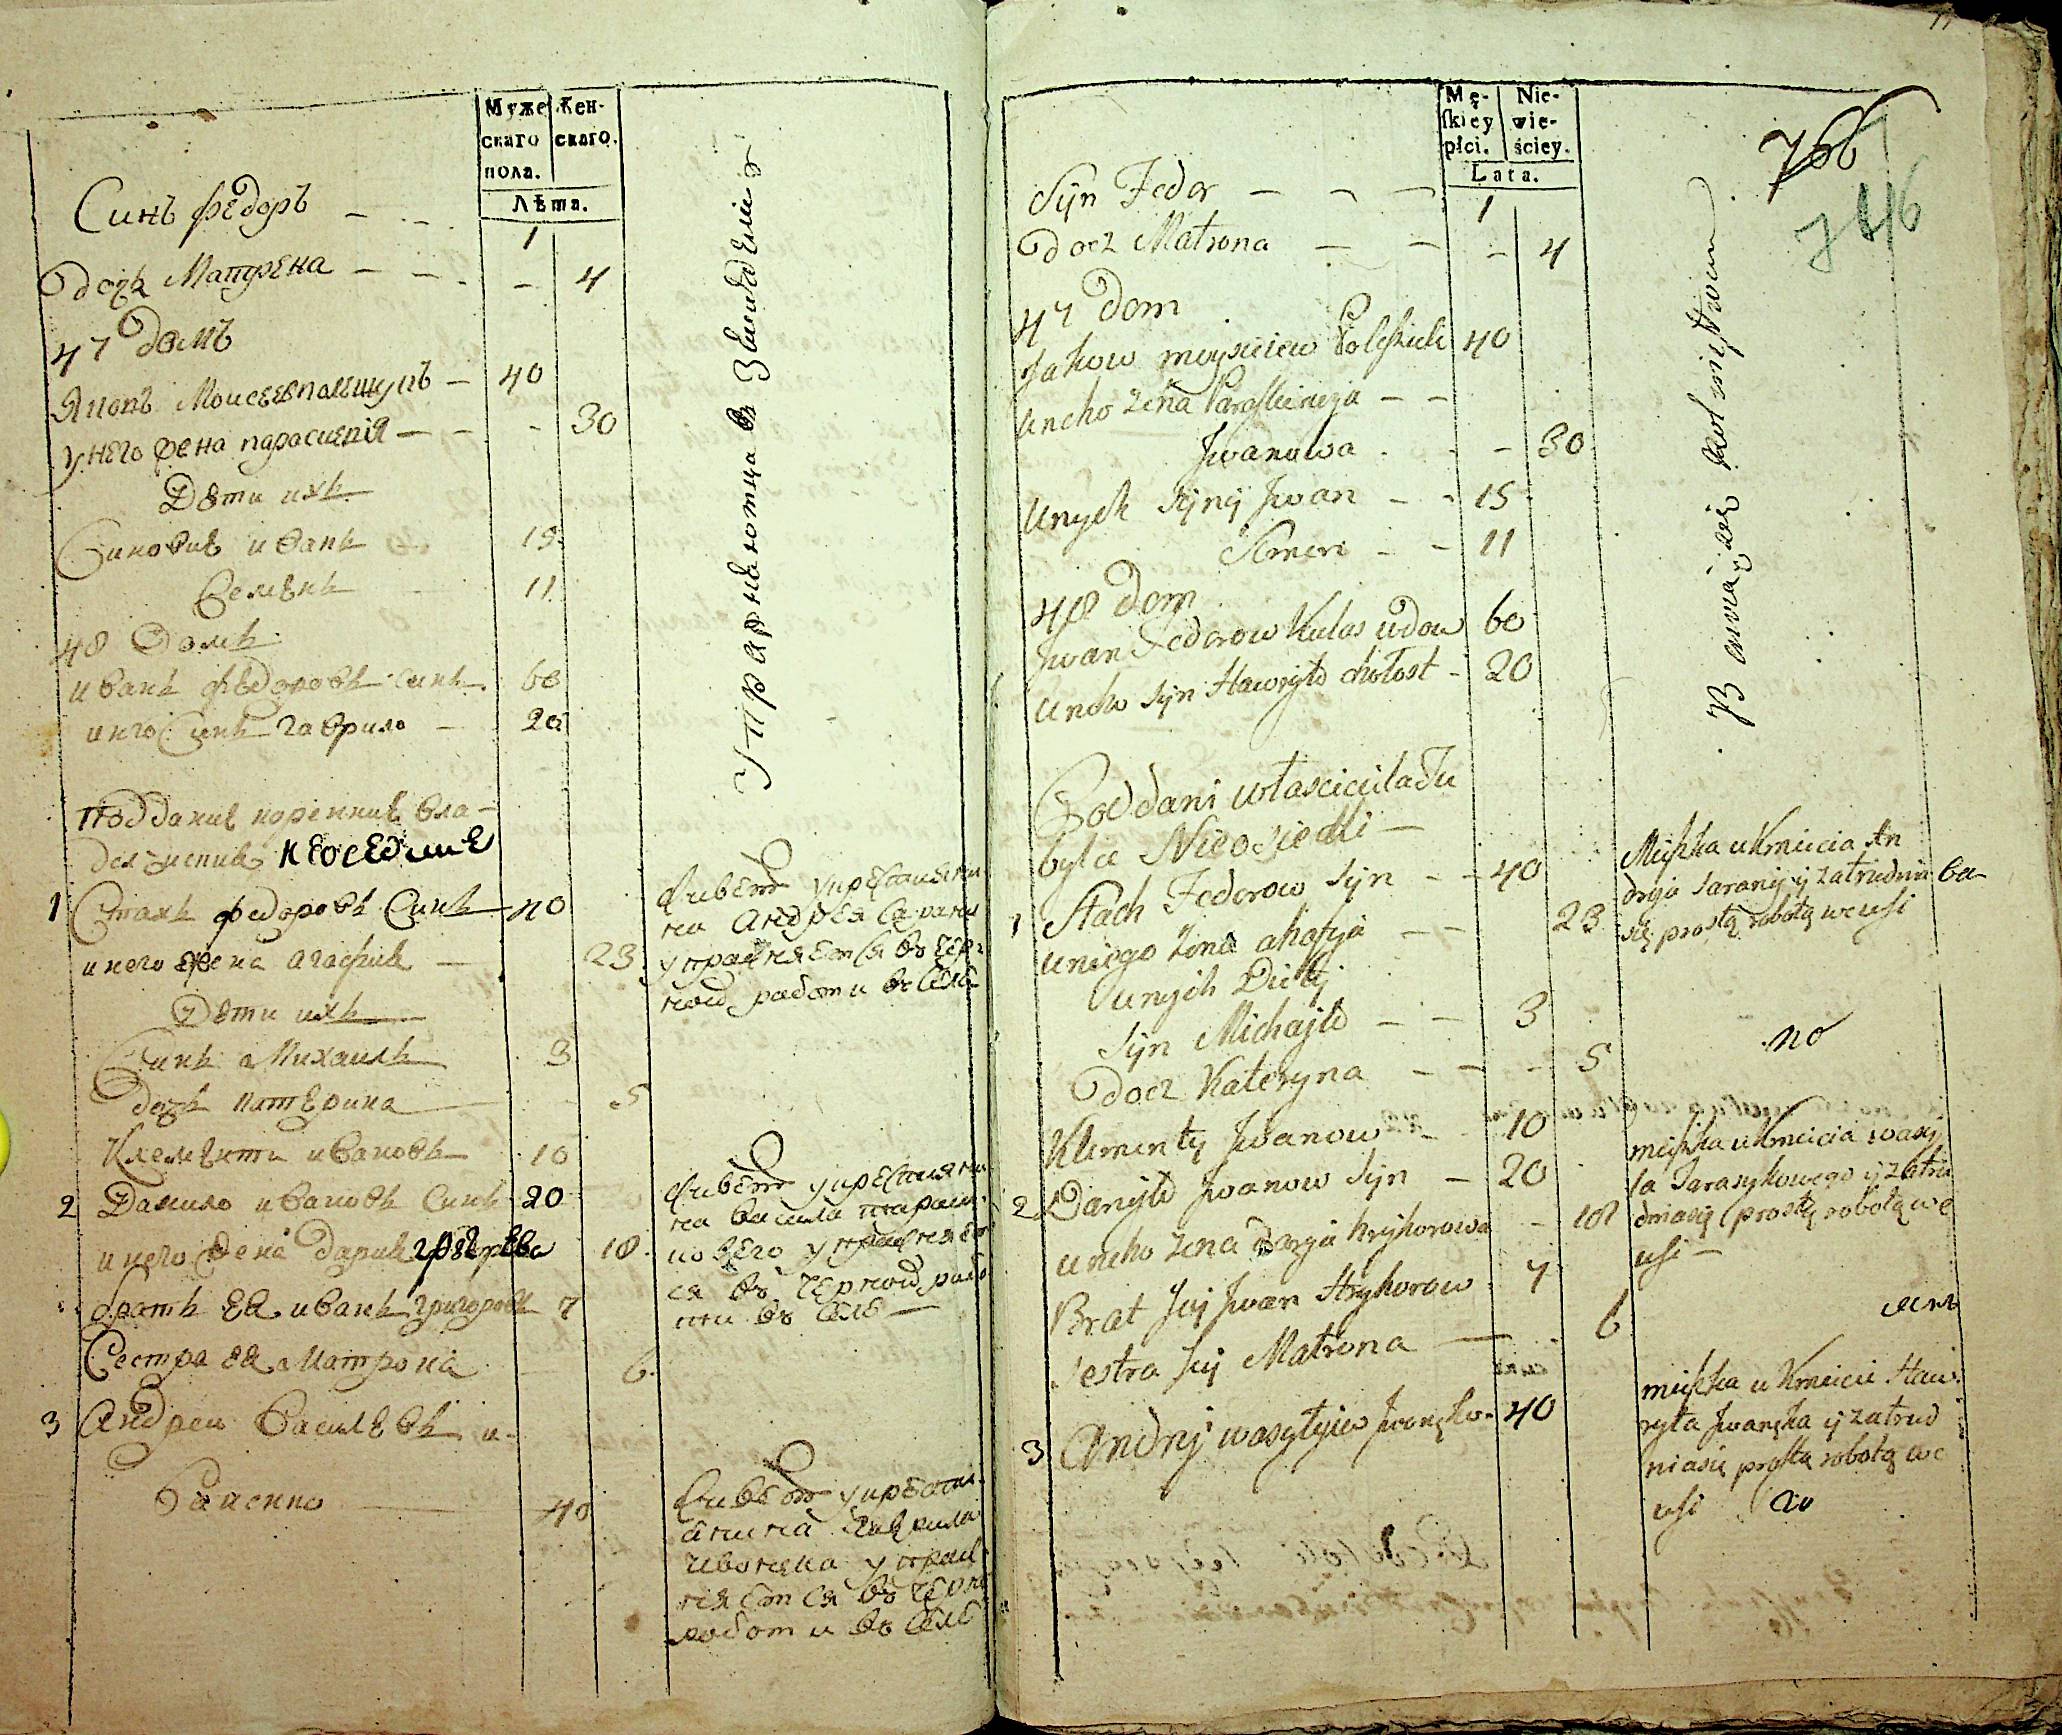 Муже
скаго
пола.
Жен-
скаго.
Лѣта.
Синъ федоръ — — 1
доçъ Матрена — — - 4
47 домъ
Яковъ Моисеев полешукъ — 40
у него жена параскевiя — - 30
Дѣти ихъ
Синовив иванъ 15
Семенъ 11
48 Домъ
иванъ федоровъ синъ 60
и него Синъ гаврило — 20
Подданив коренние вла-
делческие неоседлие
1 Стахъ федоровъ Синъ 40
и него жена агафия — 23
Дѣти ихъ
Синъ Михаилъ 3
дочъ катерина 5
Клементи ивановъ 10
2 Данило ивановъ Синъ 20
и него жена дария 18
братъ ея иванъ григоровъ 7
Сестра ея Матрона 6
3 Андреи Василевъ и-
40
Упражняютца в Земледелии
живетъ у крестьяни
на андрея Сарани
упражняется въ чер-
ной работи въ селѣ
живетъ у крестяни
на васила тараси-
ковего упражняет
ся въ черной рабо
ти въ селѣ —
живетъ у крести-
анина гаврила
иванька упраж-
няется въ черн
работи въ селѣ
Mę-
skiey
płci.
Nie-
wie-
ściey.
Lata.
766
746
Syn Fedor — — — 1
Docz Matrona — — - 4
47 Dom
Jakow moysieiew Poleszuk 40
uneho żena Paraskiewija — —
Jwanowa - 30
unych syny Jwan — - 15
Semen — — 11
48 Dom
Jwan Fedorow Kulas wdow 60
uneho syn Hawryło chołost - 20
Poddani własciciela Tu
bylce Nieosiedli —
1 Stach Fedorow syn — — 40
uniego żona ahafyja — — 23
unych Dieti
Syn Michajło — — 3
Docz Kateryna — — - 5
Klimenty Jwanow — 10
2 Danyło Jwanow syn — 20
uneho żena darya hryhorowa - 18
Brat Jey Jwan Hryhorow 7
Sestra Jey Matrona — 6
3 Andrij wasyłyiew 40
Bawią się Rolnictwem
Miszka u Kmiecia An
dryja Sarany y zatrudnia
się prostą robotą we wsi
no
miszka u Kmiecia wasy
la Tarasykowego y zatru
dniasię prostą robotą we
wsi —
miszka u Kmiecia Haw
ryła Jwańka y zatrud
niasię prostą robotą we
wsi